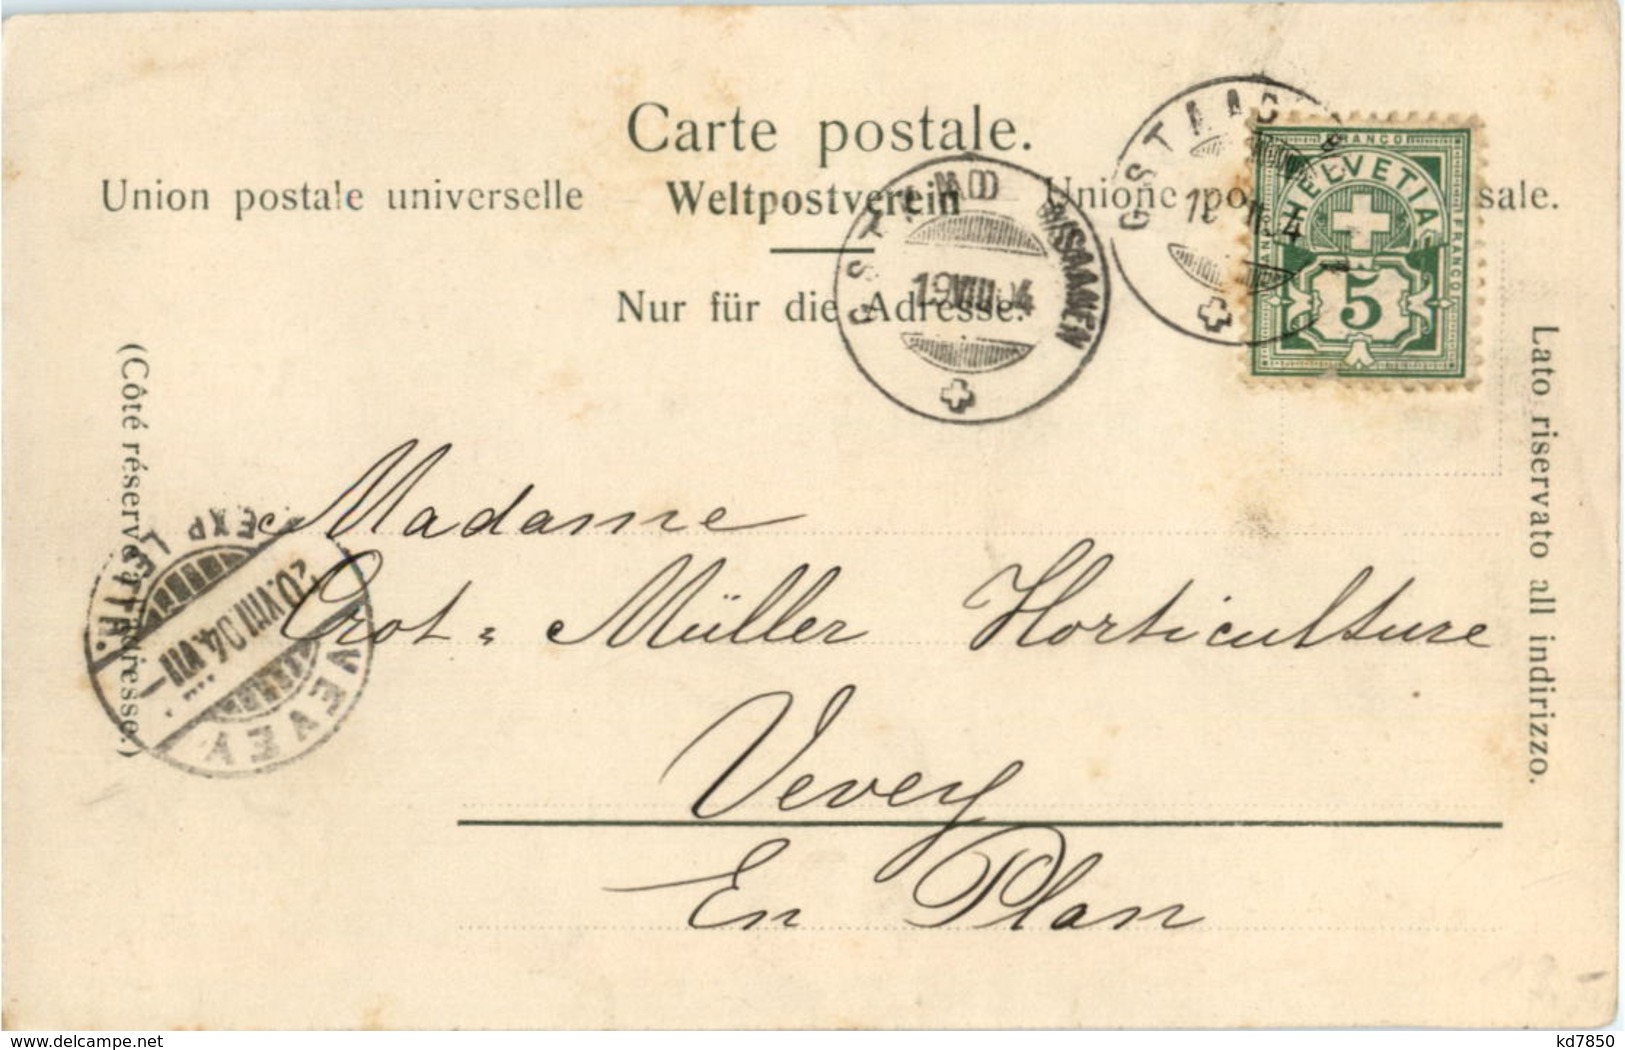 Carte postale.
Union postale universelle Weltpostverein Unione po sale.
Nur für die Adresse.
(Côté réservé à l'adresse.)
Lato riservato all indirizzo.
FRANCO
HELVETIA
FRANCO
5
19.VIII.04
SAANEN
VEVEY
EXP. LETTR.
20.VIII.04.VII
Madame
Crot-Müller Horticulture
Vevey
En Plan
delcampe.net
kd7850